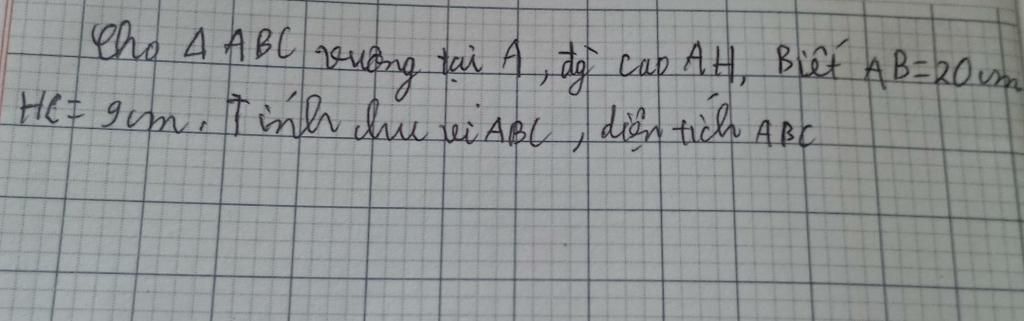 Cho Δ ABC vuông tại A, đg cao AH, Biết AB=20cm
HC= 9cm. Tính chu vi ABC, diện tích ABC